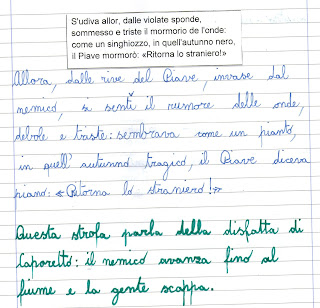 S'udiva allor, dalle violate sponde,
sommesso e triste il mormorio de l'onde:
come un singhiozzo, in quell'autunno nero,
il Piave mormorò: «Ritorna lo straniero!»
Allora, dalle rive del Piave, invase dal
nemico, si sentì il rumore delle onde,
debole e triste: sembrava come un pianto,
in quell'autunno tragico, il Piave diceva
piano: «Ritorna lo straniero!»
Questa strofa parla della disfatta di
Caporetto: il nemico avanza fino al
fiume e la gente scappa.